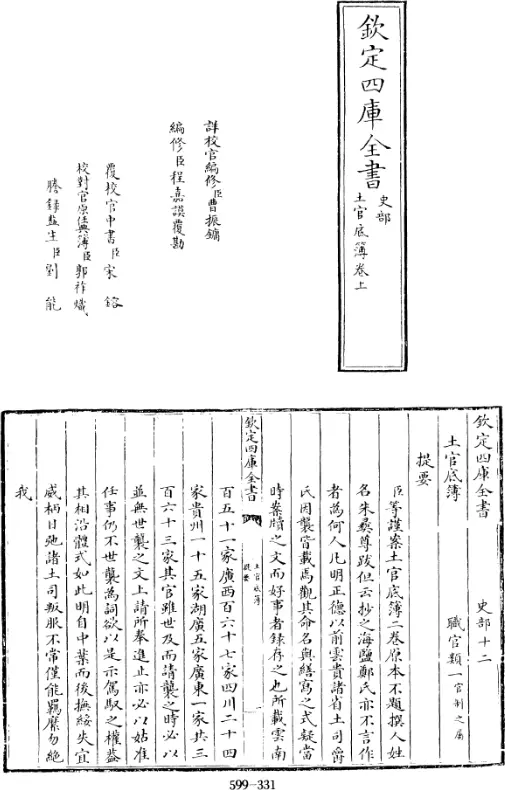 欽定四庫全書
史部
土官底簿卷上
詳校官編修臣曹振鏞
編修臣程嘉謨覆勘
覆校官中書臣宋鎔
校對官原任典簿臣郭祚熾
謄錄監生臣劉能
欽定四庫全書 史部十二
土官底簿 職官類一官制之屬
提要
臣等謹案土官底簿二卷原本不題撰人姓
名朱彝尊跋但云抄之海鹽鄭氏亦不言作
者為何人凡明正德以前雲貴諸省土司爵
氏因襲皆載焉觀其命名與繕寫之式疑當
時案牘之文而好事者錄存之也所載雲南
欽定四庫全書
土官底簿
提要
百五十一家廣西百六十七家四川二十四
家貴州一十五家湖廣五家廣東一家共三
百六十三家其官雖世及而請襲之時必以
並無世襲之文上請所奉進止亦必以姑准
任事仍不世襲為詞欲以是示駕馭之權蓋
其相沿體式如此明自中葉而後撫綏失宜
威柄日弛諸土司叛服不常僅能羈縻勿絶
我
599-331